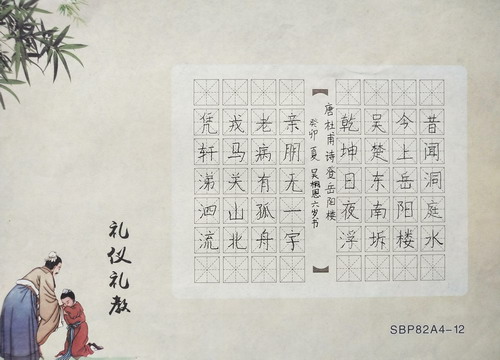 昔闻洞庭水
今上岳阳楼
吴楚东南坼
乾坤日夜浮
唐杜甫诗登岳阳楼
癸卯 夏 吴恩六岁书
亲朋无一字
老病有孤舟
戎马关山北
凭轩涕泗流
礼仪礼教
SBP82A4-12